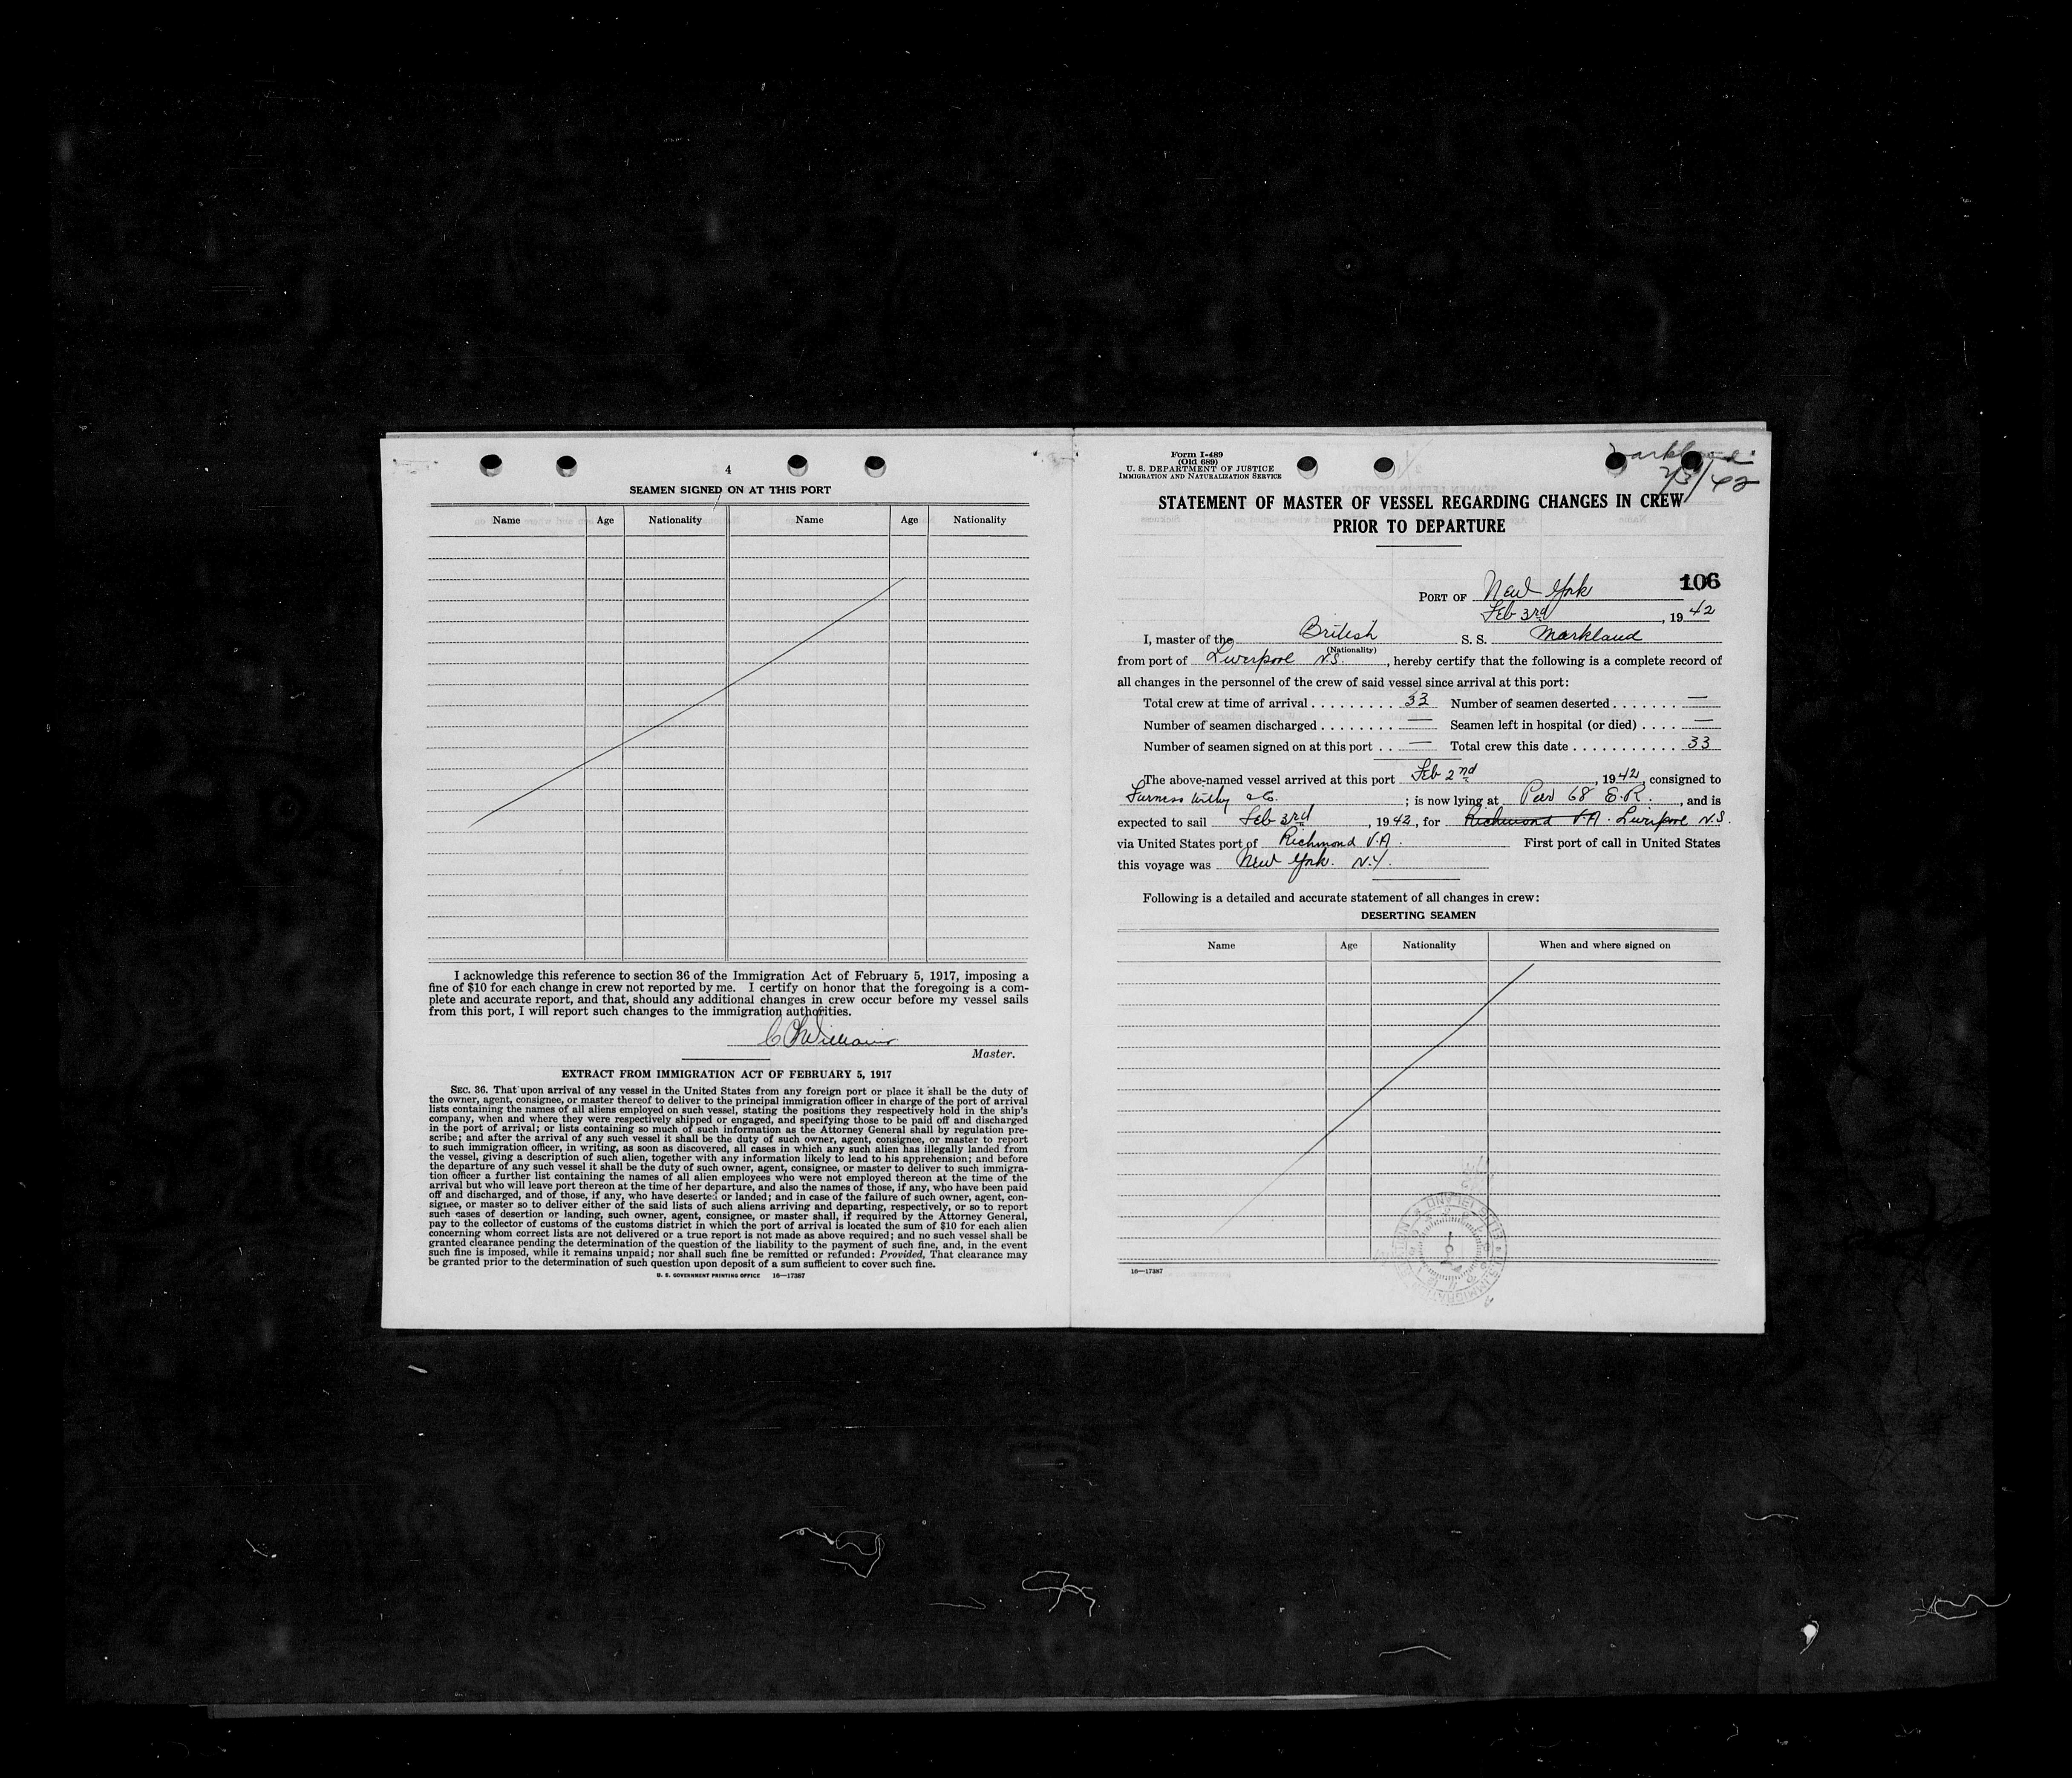 4
SEAMEN SIGNED ON AT THIS PORT
Name Age Nationality Name Age Nationality
I acknowledge this reference to section 36 of the Immigration Act of February 5, 1917, imposing a
fine of $10 for each change in crew not reported by me. I certify on honor that the foregoing is a com-
plete and accurate report, and that, should any additional changes in crew occur before my vessel sails
from this port, I will report such changes to the immigration authorities.
Williams
Master.
EXTRACT FROM IMMIGRATION ACT OF FEBRUARY 5, 1917
SEC. 36. That upon arrival of any vessel in the United States from any foreign port or place it shall be the duty of
the owner, agent, consignee, or master thereof to deliver to the principal immigration officer in charge of the port of arrival
lists containing the names of all aliens employed on such vessel, stating the positions they respectively hold in the ship's
company, when and where they were respectively shipped or engaged, and specifying those to be paid off and discharged
in the port of arrival; or lists containing so much of such information as the Attorney General shall by regulation pre-
scribe; and after the arrival of any such vessel it shall be the duty of such owner, agent, consignee, or master to report
to such immigration officer, in writing, as soon as discovered, all cases in which any such alien has illegally landed from
the vessel, giving a description of such alien, together with any information likely to lead to his apprehension; and before
the departure of any such vessel it shall be the duty of such owner, agent, consignee, or master to deliver to such immigra-
tion officer a further list containing the names of all alien employees who were not employed thereon at the time of the
arrival but who will leave port thereon at the time of her departure, and also the names of those, if any, who have been paid
off and discharged, and of those, if any, who have deserted or landed; and in case of the failure of such owner, agent, con-
signee, or master so to deliver either of the said lists of such aliens arriving and departing, respectively, or so to report
such cases of desertion or landing, such owner, agent, consignee, or master shall, if required by the Attorney General,
pay to the collector of customs of the customs district in which the port of arrival is located the sum of $10 for each alien
concerning whom correct lists are not delivered or a true report is not made as above required; and no such vessel shall be
granted clearance pending the determination of the question of the liability to the payment of such fine, and, in the event
such fine is imposed, while it remains unpaid; nor shall such fine be remitted or refunded: Provided, That clearance may
be granted prior to the determination of such question upon deposit of a sum sufficient to cover such fine.
U. S. GOVERNMENT PRINTING OFFICE 16—17387
Form I-489
(Old 689)
U. S. DEPARTMENT OF JUSTICE
IMMIGRATION AND NATURALIZATION SERVICE
2/3/42
STATEMENT OF MASTER OF VESSEL REGARDING CHANGES IN CREW
PRIOR TO DEPARTURE
PORT OF New York 106
Feb 3rd, 1942
I, master of the British S. S. Markland
(Nationality)
from port of Liverpool N.S., hereby certify that the following is a complete record of
all changes in the personnel of the crew of said vessel since arrival at this port:
Total crew at time of arrival . . . . . . . . . 33 Number of seamen deserted . . . . . . . —
Number of seamen discharged . . . . . . . . — Seamen left in hospital (or died) . . . . —
Number of seamen signed on at this port . . — Total crew this date . . . . . . . . . . . 33
The above-named vessel arrived at this port Feb 2nd, 1942, consigned to
Furness Withy & Co.; is now lying at Pier 68 E.R., and is
expected to sail Feb 3rd, 1942, for Richmond V.A. Liverpool N.S.
via United States port of Richmond V.A. First port of call in United States
this voyage was New York. N.Y.
Following is a detailed and accurate statement of all changes in crew:
DESERTING SEAMEN
Name Age Nationality When and where signed on
16—17387